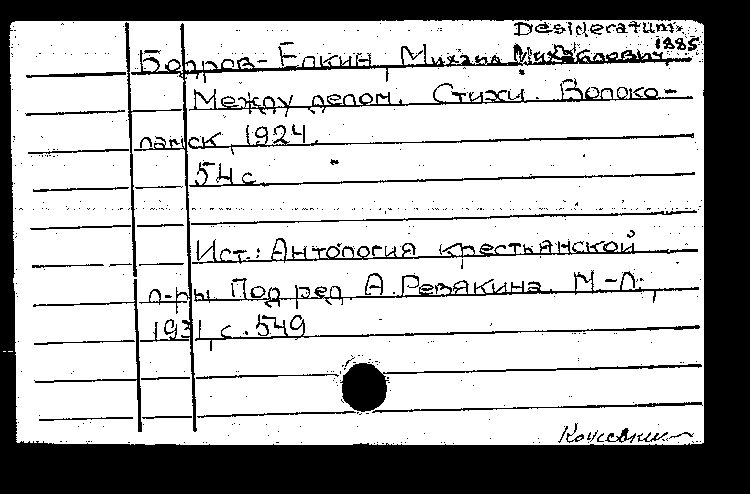 Desideratum
1885
Бодров-Елкин, Михаил Михайлович.
Между делом. Стихи. Волоко-
ламск, 1924.
54 с.
Ист.: Антология крестьянской
л-ры. Под ред. А. Ревякина. М.-Л.,
1931, с. 549